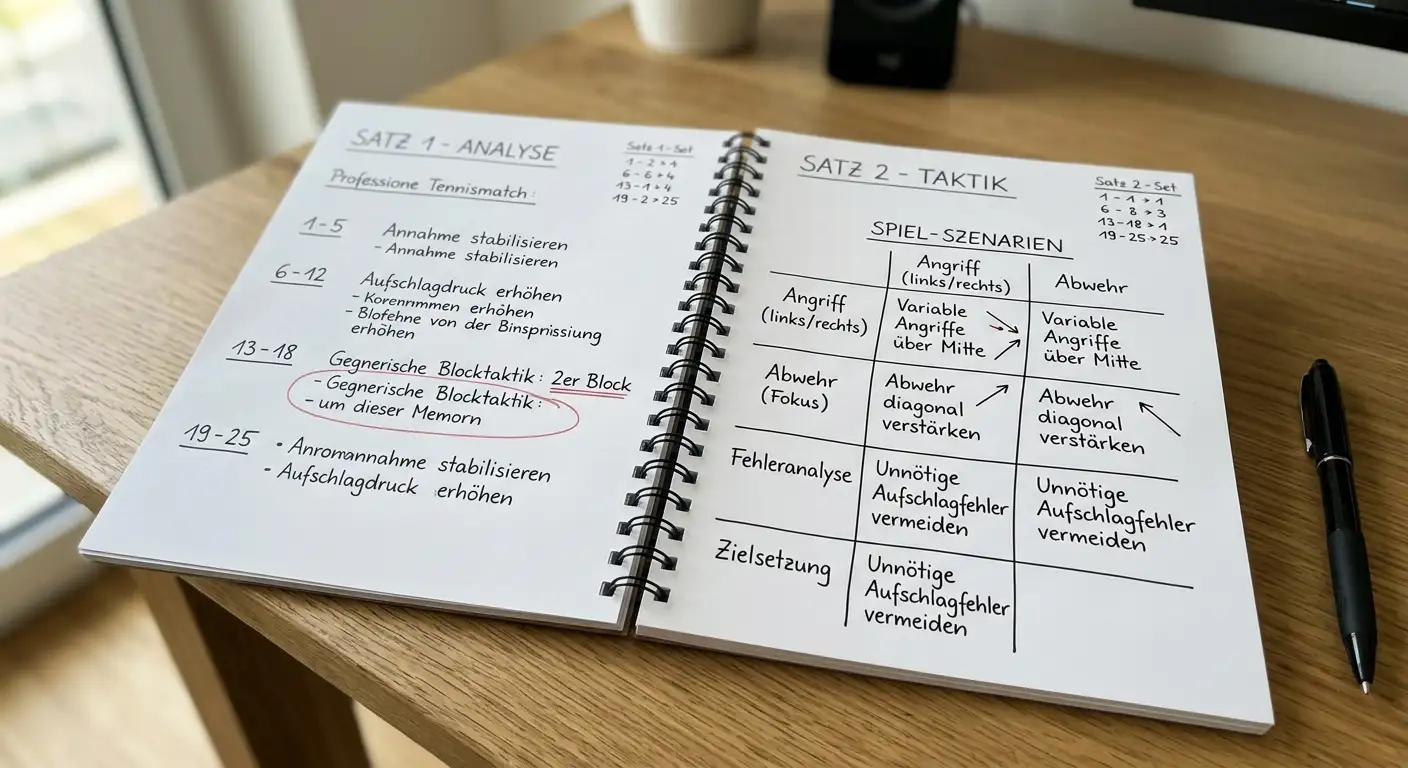 SATZ 1 - ANALYSE
Satz 1 - Set
1 - 2 > 1
6 - 6 > 4
13 - 1 > 4
19 - 2 > 25
Professione Tennismatch:
1 - 5
Annahme stabilisieren
- Annahme stabilisieren
6 - 12
Aufschlagdruck erhöhen
- Korenrımmen erhöhen
- Blofehne von der Binsprissiung
erhöhen
13 - 18
Gegnerische Blocktaktik: 2er Block
- Gegnerische Blocktaktik:
- um dieser Memorn
19 - 25
• Anromannahme stabilisieren
- Aufschlagdruck erhöhen
SATZ 2 - TAKTIK
Satz 2 - Set
1 - 1 > 1
6 - 8 > 3
13 - 18 > 1
19 - 25 > 25
SPIEL-SZENARIEN
Angriff
(links/rechts)
Abwehr
Angriff
(links/rechts)
Variable
Angriffe
über Mitte
Variable
Angriffe
über Mitte
Abwehr
(Fokus)
Abwehr
diagonal
verstärken
Abwehr
diagonal
verstärken
Fehleranalyse
Unnötige
Aufschlagfehler
vermeiden
Unnötige
Aufschlagfehler
vermeiden
Zielsetzung
Unnötige
Aufschlagfehler
vermeiden